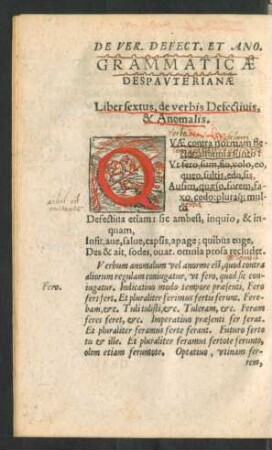 DE VER. DEFECT. ET ANO.
GRAMMATICÆ
DESPAVTERIANÆ
Liber sextus, de verbis Defectiuis,
& Anomalis.
QVÆ contra normam fle-
Vt fero, sum, fio, volo, eo,
queo, sultis, edo, sis
Ausim, quæso, forem, fa-
xo, cedo: pluraq; mul-
Defectiua etiam: sic ambest, inquio, & in-
quam,
Infit, aue, salue, capsis, apage; quibus euge,
Des & ait, sodes, ouat. omnia prosa recludet.
Verbum anomalum vel anorme est, quod contra
aliorum regulam coniugatur, vt fero, quod sic con-
Fero.
iugatur. Indicatiuo modo tempore præsenti, Fero
fers fert. Et pluraliter ferimus fertis ferunt. Fere-
bam, &c. Tuli tulisti, &c. Tuleram, &c. Feram
feres feret, &c. Imperatiuo præsenti fer ferat.
Et pluraliter feramus ferte ferant. Futuro ferto
tu & ille. Et pluraliter feramus fertote ferunto,
olim etiam feruntote. Optatiuo, vtinam fer-
rem,